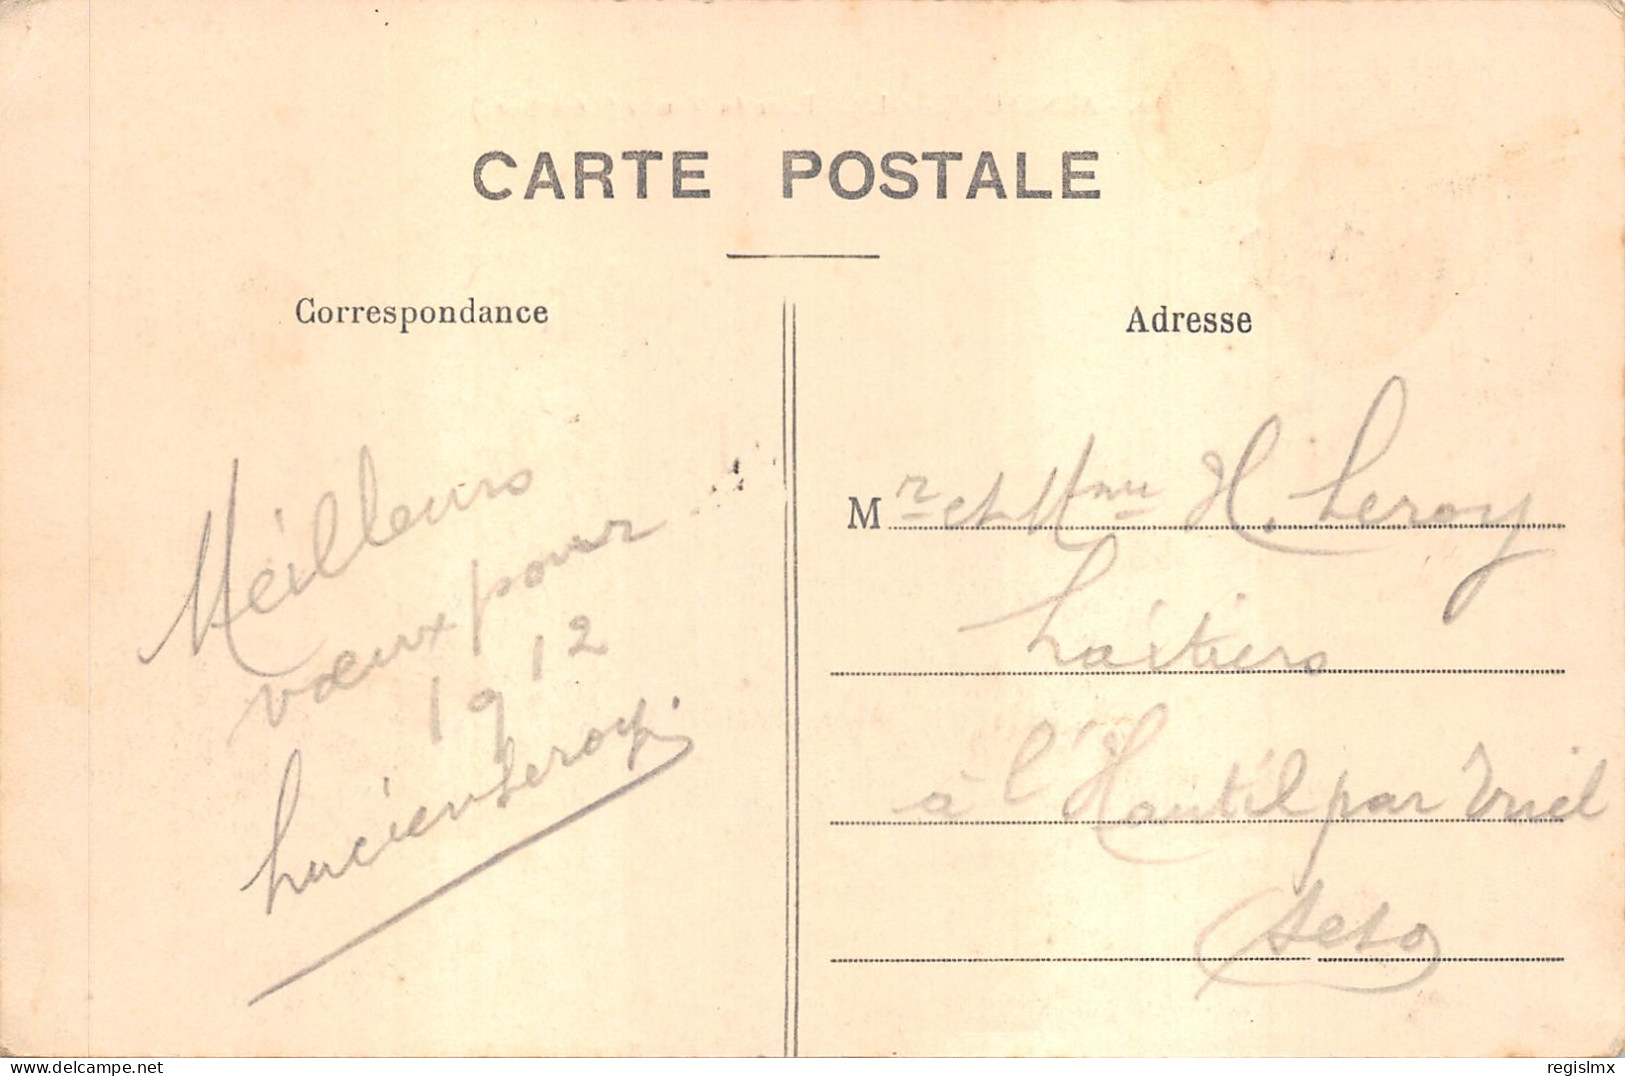 CARTE POSTALE
Correspondance
Meilleurs
voeux pour
1912
Lucien Leroy
Adresse
Mr et Mme H. Leroy
Laitiers
à l'Hautil par Triel
S et O
delcampe.net
regislmx